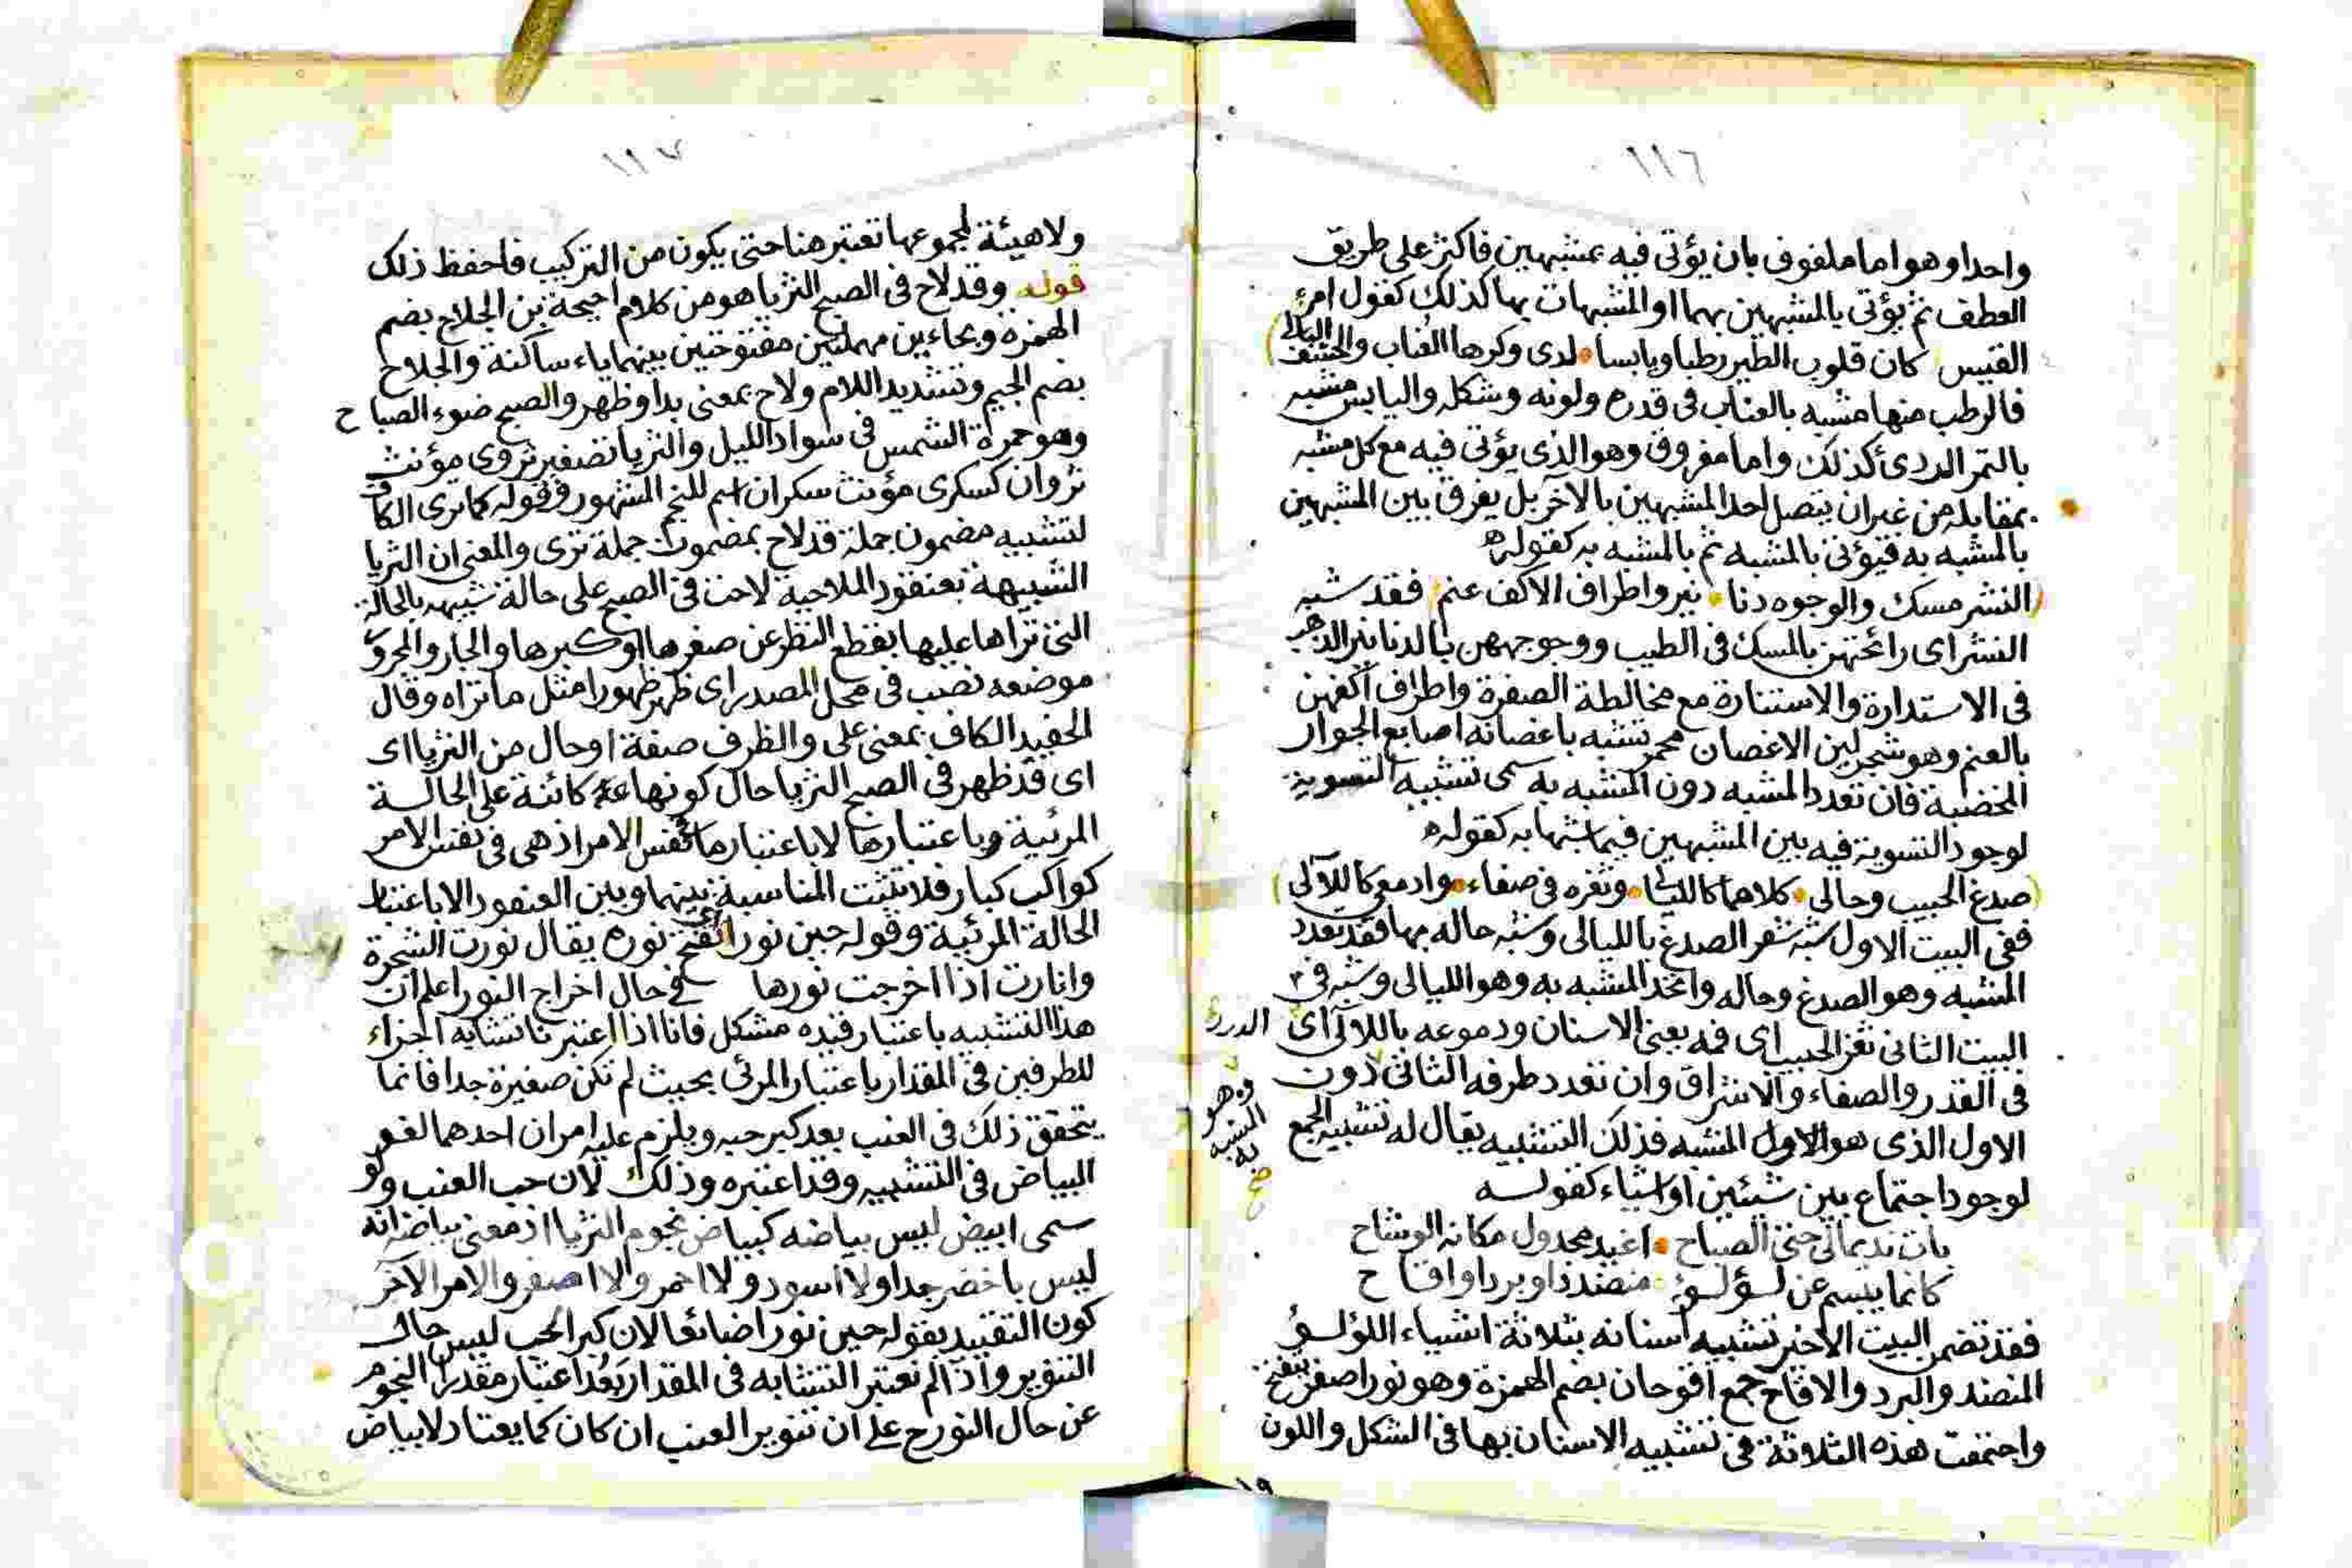 ١١٦
واحدا وهو اما ملفوف بان يؤتى فيه بمشبهين فاكثر على طريق
العطف ثم يؤتى بالمشبهين بهما او المشبهات بها كذلك كقول امرئ
القيس كان قلوب الطير رطبا ويابسا لدى وكرها العناب والحشف البالى
فالرطب منها مشبه بالعناب فى قدره ولونه وشكله واليابس مشبه
بالتمر الردىء كذلك واما مفروق وهو الذى يؤتى فيه مع كل مشبه
بمقابله من غير ان يتصل احد المشبهين بالآخر بل يفرق بين المشبهين
بالمشبه به فيؤتى بالمشبه ثم بالمشبه به كقوله
النشر مسك والوجوه دنا نير واطراف الاكف عنم فقد شبه
النشر اى رائحتهن بالمسك فى الطيب ووجوههن بالدنانير الذهب
فى الاستدارة والاستنارة مع مخالطة الصفرة واطراف اكفهن
بالعنم وهو شجر لين الاغصان محمر تشبه باغصانه اصابع الجوار
المخضبة فان تعدد المشبه دون المشبه به سمى تشبيه التسوية
لوجود التسوية فيه بين المشبهين فيما شبها به كقوله
صدغ الحبيب وحالى كلاهما كالليالى وثغره فى صفاء وادمعى كاللآلى
ففى البيت الاول شبه شعر الصدغ بالليالى وشبه حاله بها فقد تعدد
المشبه وهو الصدغ وحاله واتحد المشبه به وهو الليالى وشبه فى
البيت الثانى ثغر الحبيب اى فمه يعنى الاسنان ودموعه باللآلى اى الدرر
فى القدر والصفاء والاشراق وان تعدد طرفه الثانى دون
الاول الذى هو الاول المشبه فذلك التشبيه يقال له تشبيه الجمع
وهو
المشبه
به
صح
لوجود اجتماع بين شيئين او اشياء كقوله
بات نديما لى حتى الصباح اغيد مجدول مكان الوشاح
كانما يبسم عن لؤلؤ منضد او برد او اقاح
فقد تضمن البيت الاخير تشبيه اسنانه بثلاثة اشياء اللؤلؤ
المنضد والبرد والاقاح جمع اقحوان بضم الهمزة وهو نور اصفر
واجتمعت هذه الثلاثة فى تشبيه الاسنان بها فى الشكل واللون
١٩
١١٧
ولا هيئة لمجموعها تعتبر هنا حتى يكون من التركيب فاحفظ ذلك
قوله وقد لاح فى الصبح الثريا هو من كلام احيحة بن الجلاح بضم
الهمزة وبحاءين مهملتين مفتوحتين بينهما ياء ساكنة والجلاح
بضم الجيم وتشديد اللام ولاح بمعنى بدا وظهر والصبح ضوء الصباح
وهو حمرة الشمس فى سواد الليل والثريا تصغير ثروى مؤنث
ثروان كسكرى مؤنث سكران اسم للنجم المشهور وقوله كما ترى الكاف
لتشبيه مضمون جملة قد لاح بمضمون جملة ترى والمعنى ان الثريا
الشبيهة بعنقود الملاحية لاحت فى الصبح على حالة شبيهه بالحالة
التى تراها عليها بقطع النظر عن صغرها او كبرها والجار والمجرور
موضعه نصب فى محل المصدر اى ظهر ظهورا مثل ما تراه وقال
الحفيد الكاف بمعنى على والظرف صفة او حال من الثريا اى
اى قد ظهر فى الصبح الثريا حال كونها كائنة على الحالة
المرئية وباعتبارها لا باعتبار ما فى نفس الامر اذ هى فى نفس الامر
كواكب كبار فلا تثبت المناسبة بينهما وبين العنقود الا باعتبار
الحالة المرئية وقوله حين نورا اى تفتح نوره يقال نورت الشجرة
وانارت اذا اخرجت نورها فى حال اخراج النور اعلم ان
هذا التشبيه باعتبار قيده مشكل فانا اذا اعتبرنا تشابه اجزاء
للطرفين فى المقدار باعتبار المرئى بحيث لم تكن صغيرة جدا فانما
يتحقق ذلك فى العنب بعد كبر حبه ويلزم عليه امران احدهما لغو
البياض فى التشبيه وقد اعتبره وذلك لان حب العنب ولو
سمى ابيض ليس بياضه كبياض نجوم الثريا اذ معنى بياضه انه
ليس باخضر جدا ولا اسود ولا احمر ولا اصفر والامر الآخر
كون التقييد بقوله حين نورا ضائعا لان كبر الحب ليس حال
التنوير واذا لم نعتبر التشابه فى المقدار بعد اعتبار مقدار النجوم
عن حال النور على ان تنوير العنب ان كان كما يعتاد لا بياض